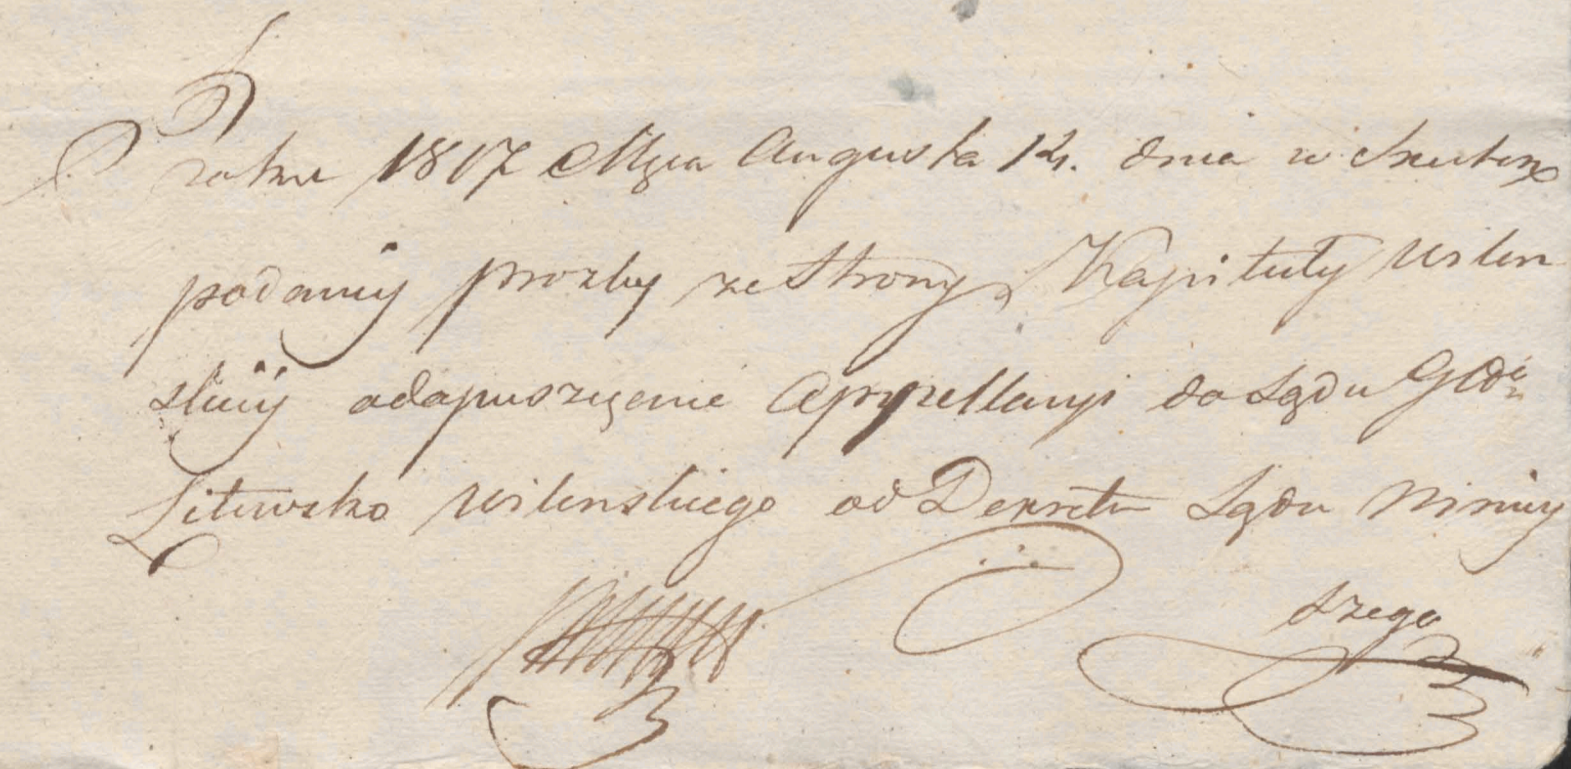 roku 1817 Mca Augusta 12. dnia w skutek
podaney prozby ze Strony Kapituły Wilen
skiey odopuszczenie Appellacyi do Sądu Głł
Litewsko Wilenskiego od Dekretu Sądu Niniey
szego